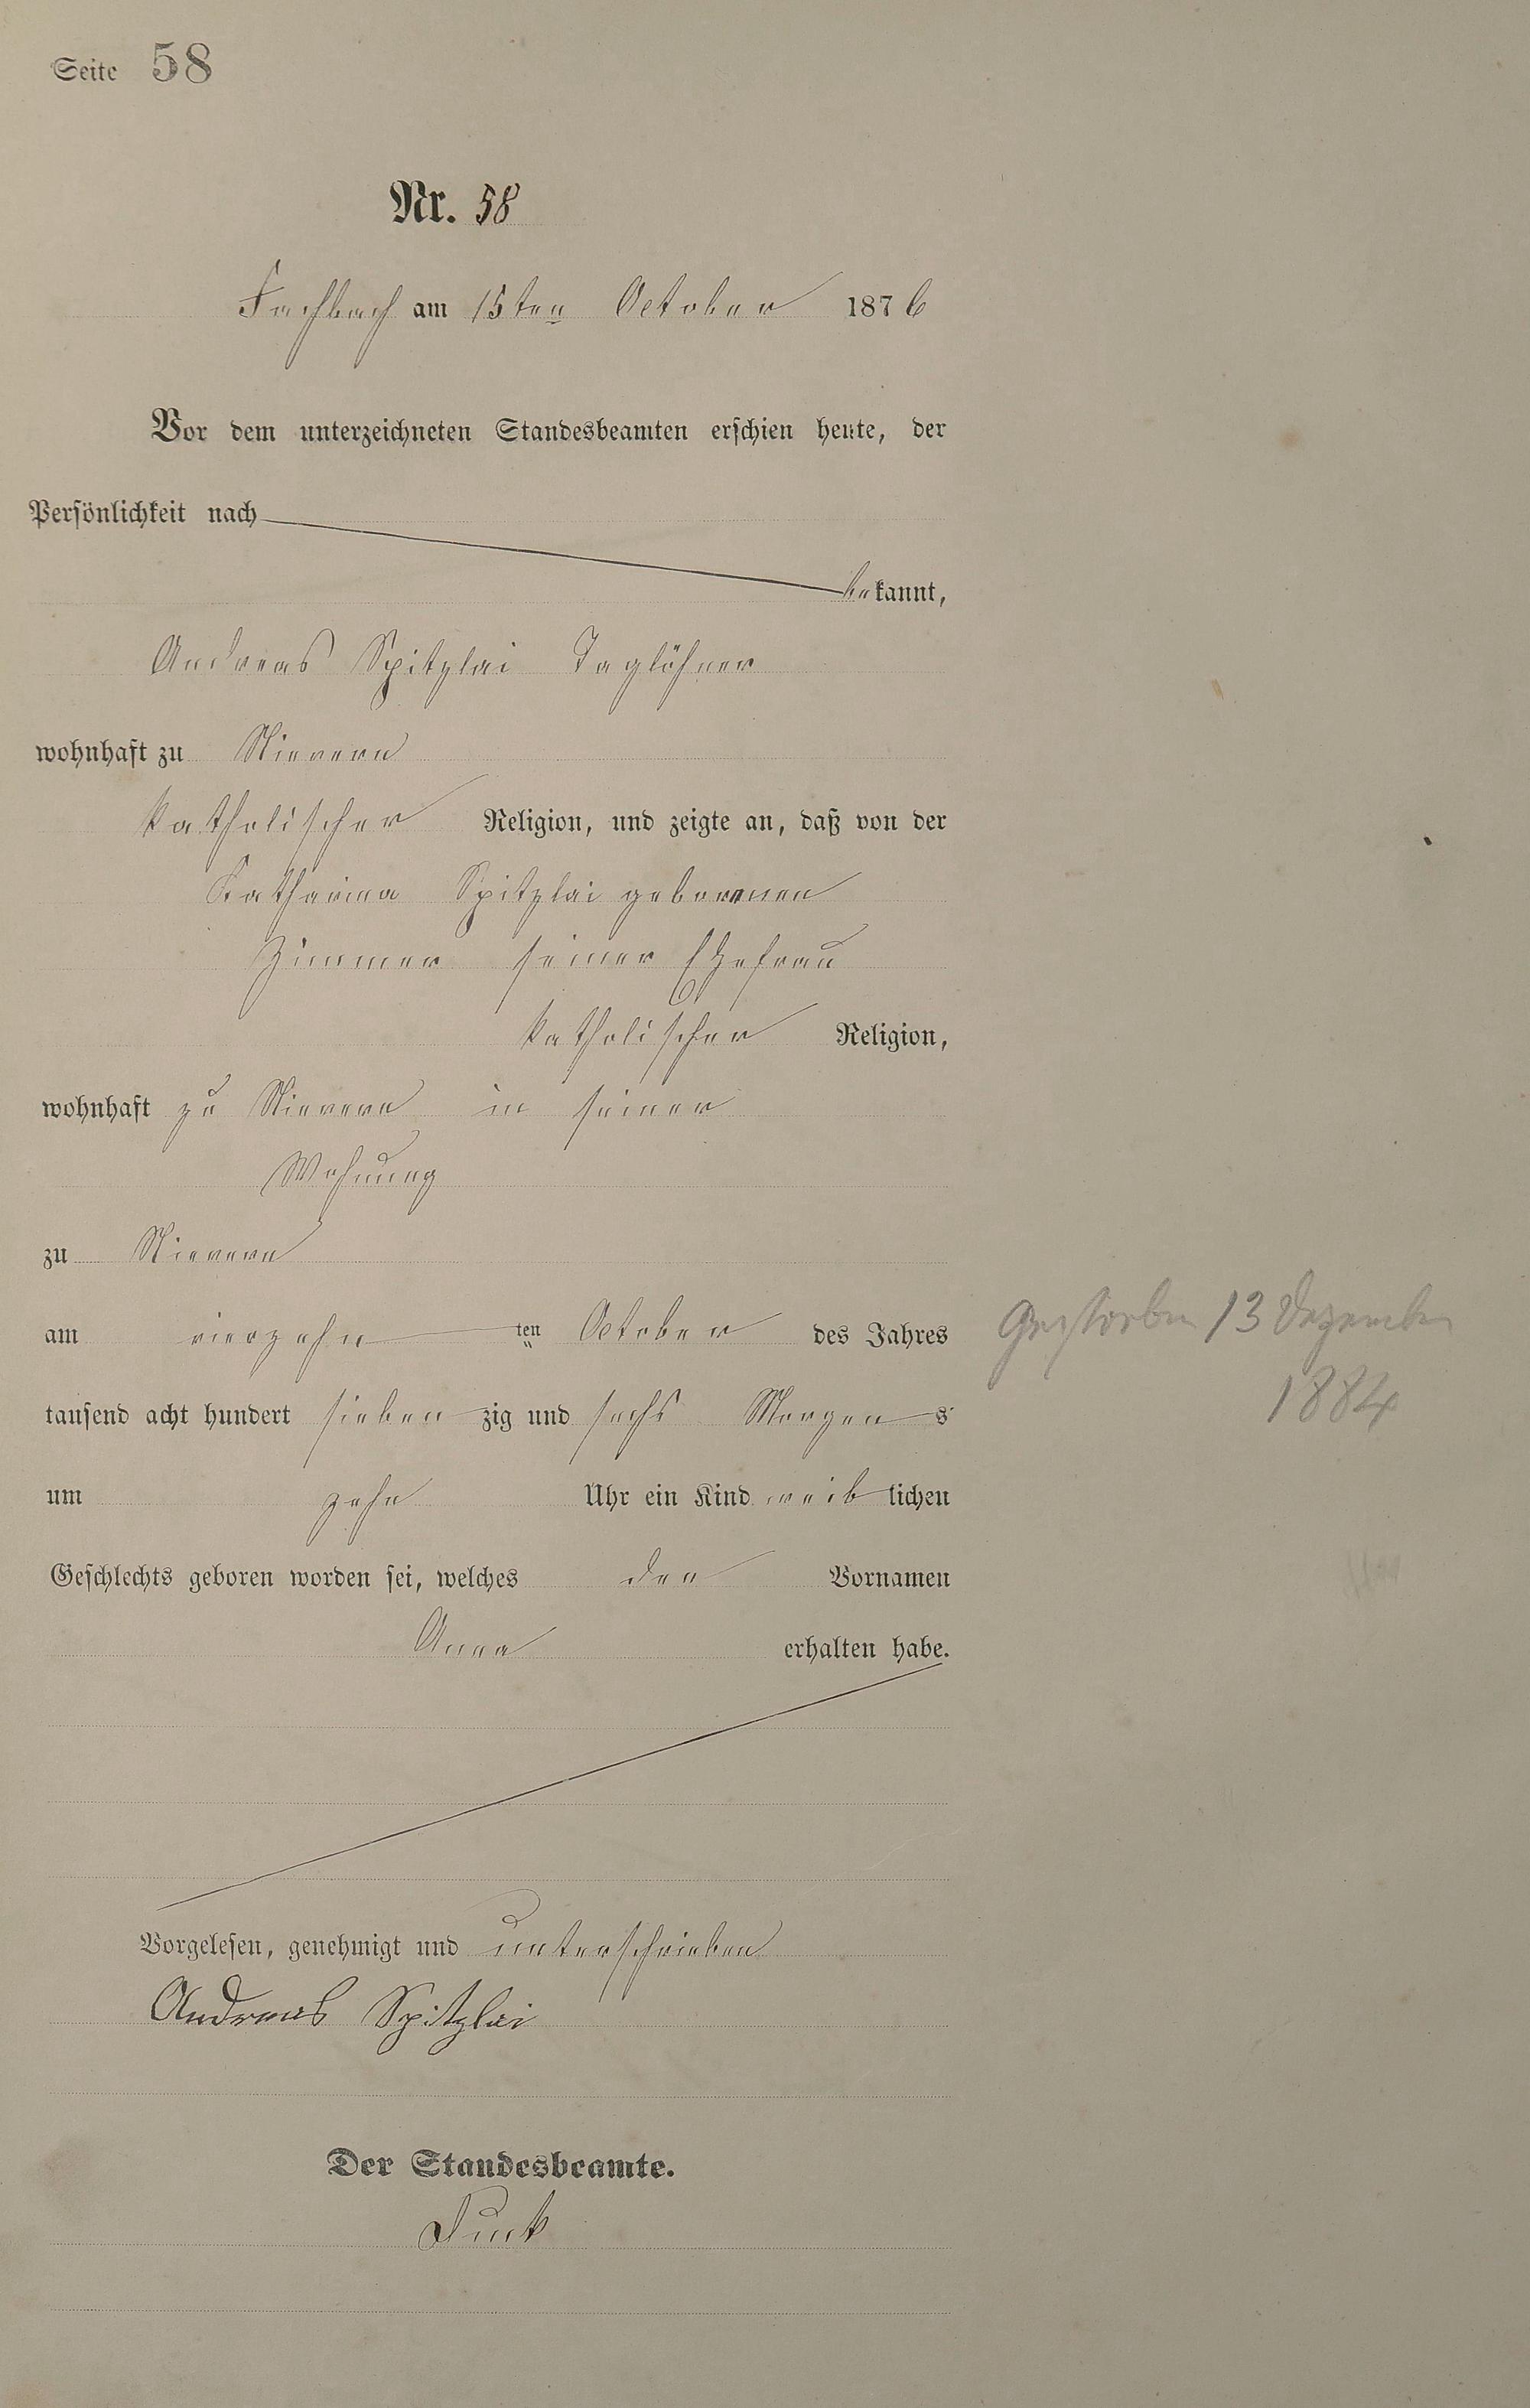 Seite 58
Nr. 58
Fachbach am 15ten October 1876
Vor dem unterzeichneten Standesbeamten erschien heute, der
Persönlichkeit nach
bekannt,
Andreas Spitzlai Taglöhner
wohnhaft zu Nievern
katholischer Religion, und zeigte an, daß von der
Katharina Spitzlai geborenen
Zimmer seiner Ehefrau
katholischer Religion,
wohnhaft zu Nievern in seiner
Wohnung
zu Nievern
am vierzehn ten October des Jahres
tausend acht hundert sieben zig und sechs Morgen s
um zehn Uhr ein Kind weib lichen
Geschlechts geboren worden sei, welches den Vornamen
Anna erhalten habe.
Gestorben 13 Dezember
1884
Vorgelesen, genehmigt und unterschrieben
Andreas Spitzlai
Der Standesbeamte.